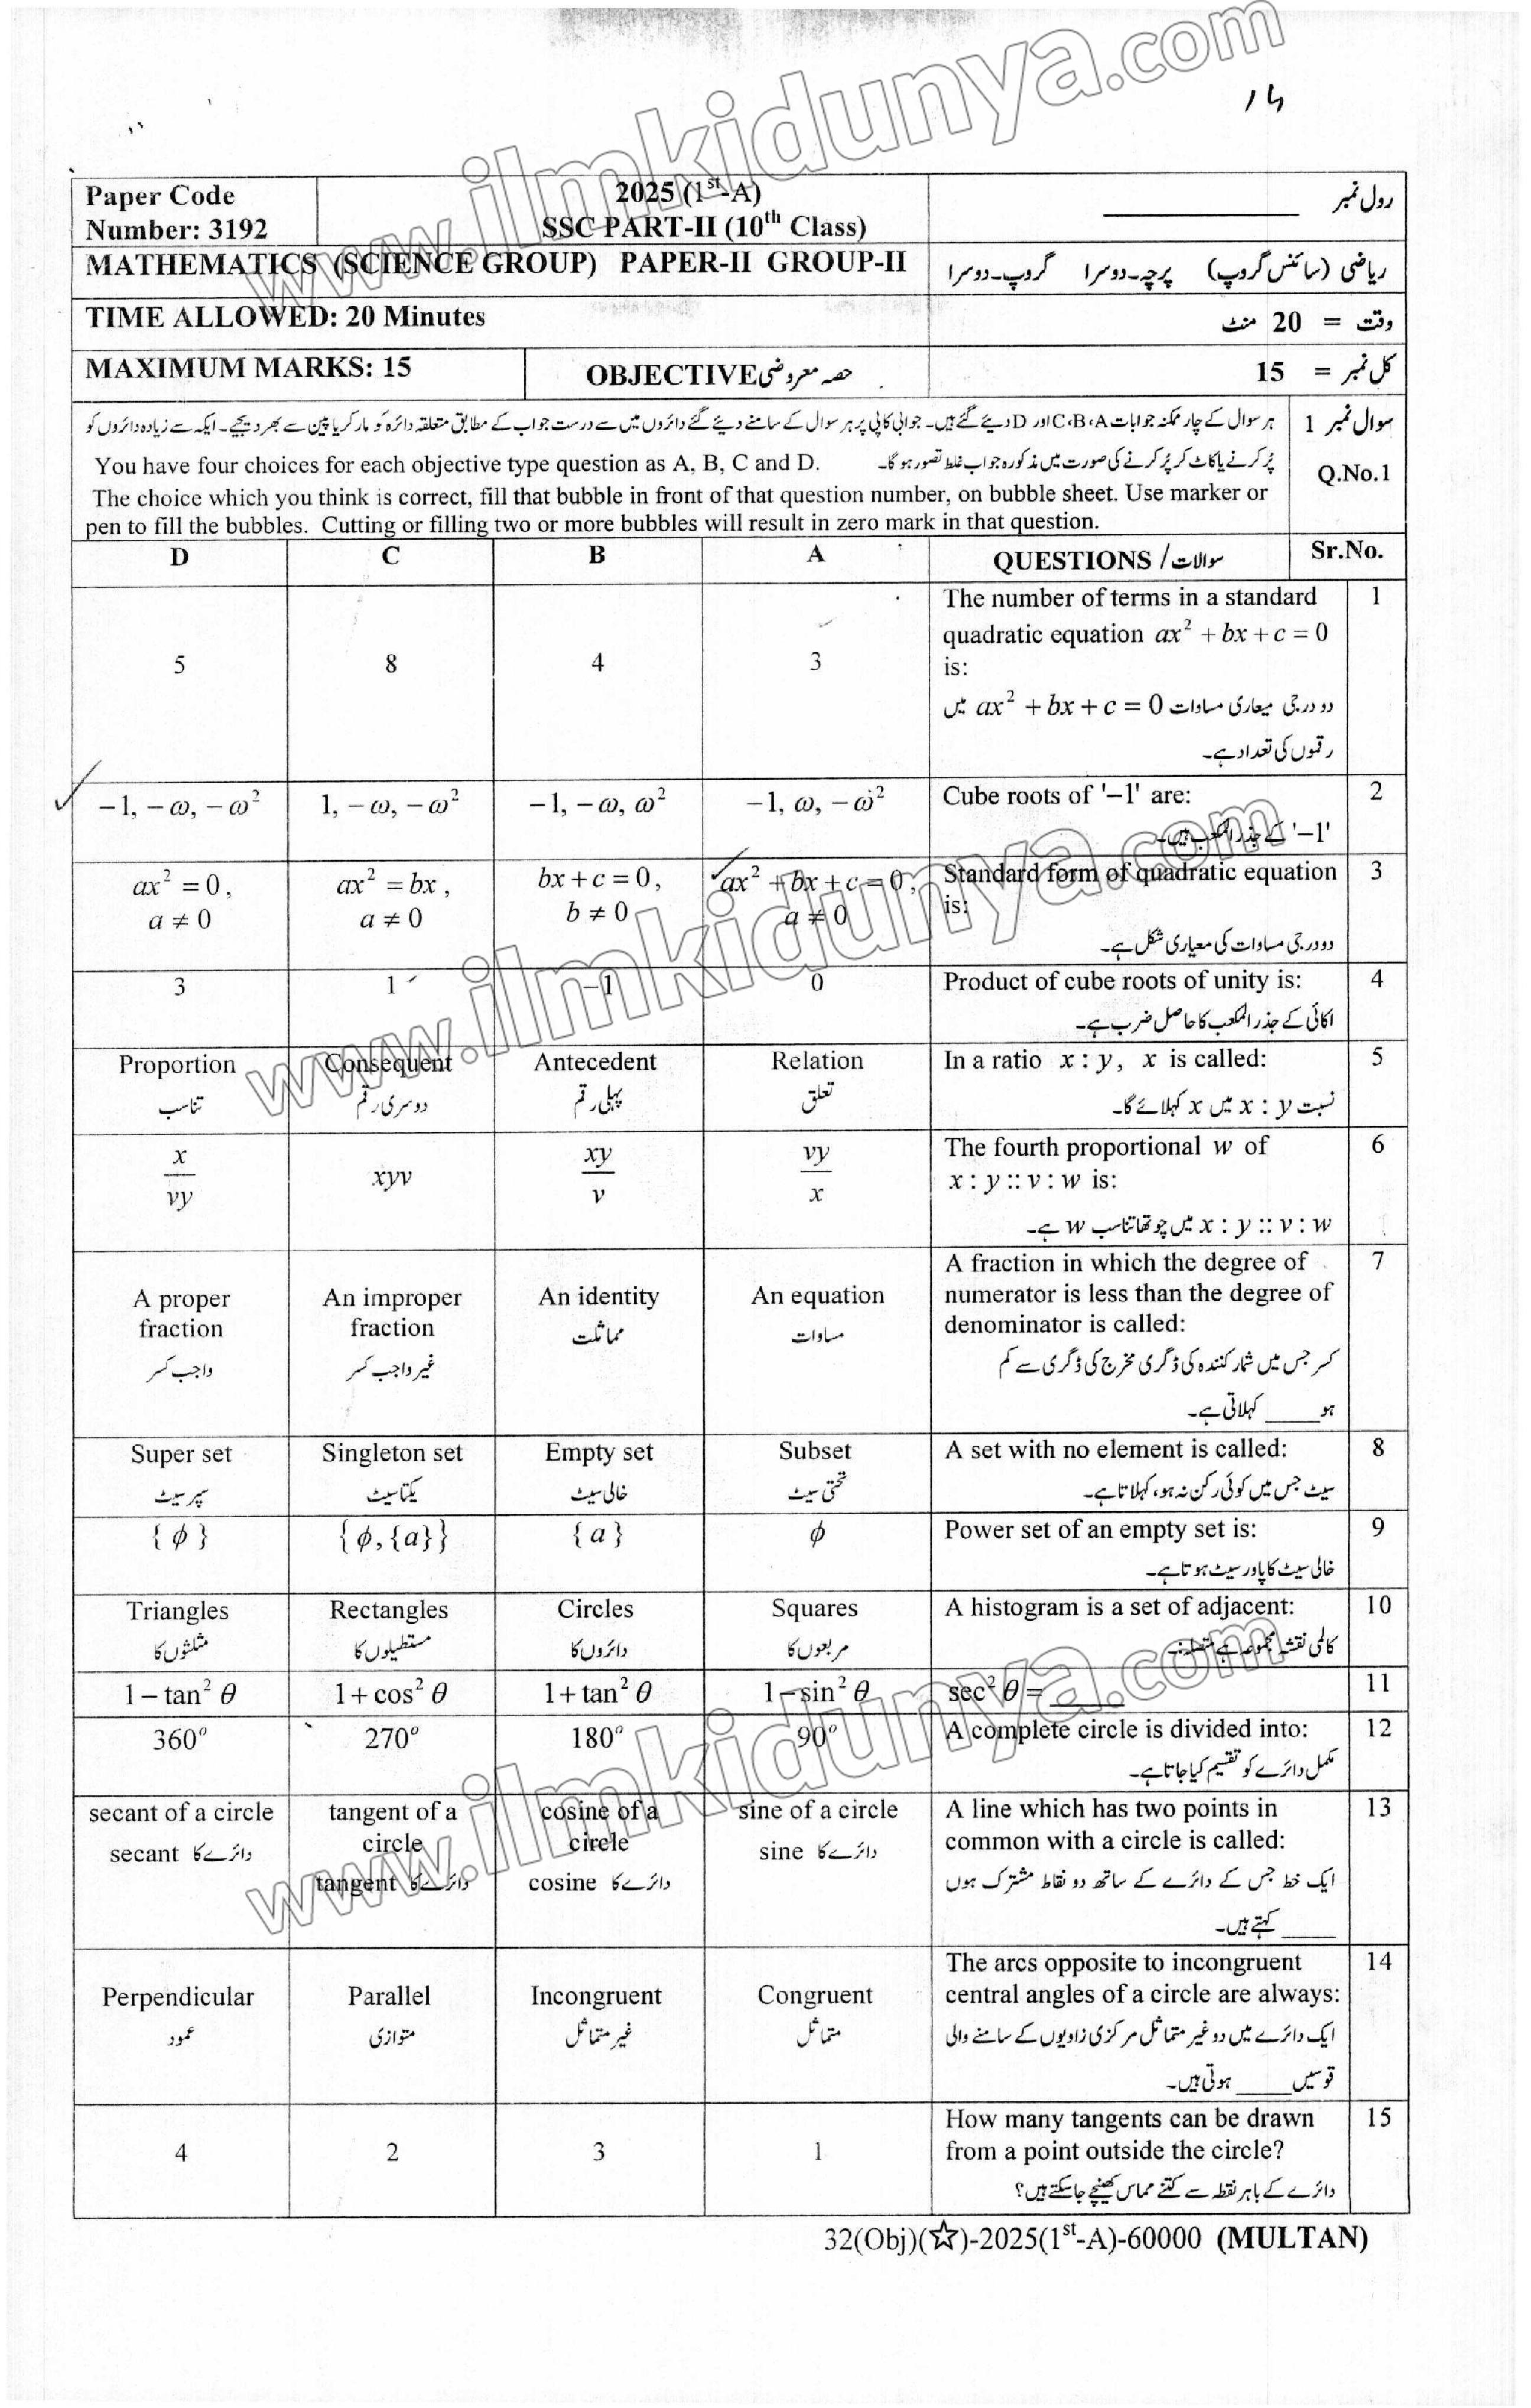 www.ilmkidunya.com
14
Paper Code
Number: 3192
2025 (1st-A)
SSC PART-II (10th Class)
رول نمبر
MATHEMATICS (SCIENCE GROUP) PAPER-II GROUP-II
ریاضی (سائنس گروپ) پرچہ۔دوسرا گروپ۔دوسرا
TIME ALLOWED: 20 Minutes
وقت = 20 منٹ
MAXIMUM MARKS: 15
OBJECTIVE حصہ معروضی
کل نمبر = 15
سوال نمبر 1
ہر سوال کے چار ممکنہ جوابات C،B،A اور D دیئے گئے ہیں۔ جوابی کاپی پر ہر سوال کے سامنے دیئے گئے دائروں میں سے درست جواب کے مطابق متعلقہ دائرہ کو مارکر یا پین سے بھر دیجیے۔ ایک سے زیادہ دائروں کو
پُر کرنے یا کاٹ کر پُر کرنے کی صورت میں مذکورہ جواب غلط تصور ہو گا۔
Q.No.1
You have four choices for each objective type question as A, B, C and D.
The choice which you think is correct, fill that bubble in front of that question number, on bubble sheet. Use marker or
pen to fill the bubbles. Cutting or filling two or more bubbles will result in zero mark in that question.
D C B A QUESTIONS / سوالات Sr.No.
The number of terms in a standard 1
quadratic equation ax² + bx + c = 0
is:
5 8 4 3
دو درجی معیاری مساوات ax² + bx + c = 0 میں
رقموں کی تعداد ہے۔
−1, −ω, −ω² 1, −ω, −ω² −1, −ω, ω² −1, ω, −ω² Cube roots of '−1' are: 2
'−1' کے جذر المکعب ہیں۔
ax² = 0, a ≠ 0
ax² = bx, a ≠ 0
bx + c = 0, b ≠ 0
ax² + bx + c = 0, a ≠ 0
Standard form of quadratic equation 3
is:
دو درجی مساوات کی معیاری شکل ہے۔
3 1 −1 0 Product of cube roots of unity is: 4
اکائی کے جذر المکعب کا حاصل ضرب ہے۔
Proportion Consequent Antecedent Relation In a ratio x : y, x is called: 5
تناسب دوسری رقم پہلی رقم تعلق
نسبت x : y میں x کہلائے گا۔
x/vy xyv xy/v vy/x The fourth proportional w of 6
x : y :: v : w is:
x : y :: v : w میں چوتھا تناسب w ہے۔
A fraction in which the degree of 7
numerator is less than the degree of
denominator is called:
A proper fraction
An improper fraction
An identity
An equation
واجب کسر غیر واجب کسر مماثلت مساوات
کسر جس میں شمار کنندہ کی ڈگری مخرج کی ڈگری سے کم
ہو ____ کہلاتی ہے۔
Super set Singleton set Empty set Subset A set with no element is called: 8
سپر سیٹ یکتا سیٹ خالی سیٹ تحتی سیٹ
سیٹ جس میں کوئی رکن نہ ہو، کہلاتا ہے۔
{ϕ} {ϕ, {a}} {a} ϕ Power set of an empty set is: 9
خالی سیٹ کا پاور سیٹ ہوتا ہے۔
Triangles Rectangles Circles Squares A histogram is a set of adjacent: 10
مثلثوں کا مستطیلوں کا دائروں کا مربعوں کا
کالمی نقشہ مجموعہ ہے متصلہ:۔
1 − tan² θ 1 + cos² θ 1 + tan² θ 1 − sin² θ sec² θ = ____ 11
360° 270° 180° 90° A complete circle is divided into: 12
مکمل دائرے کو تقسیم کیا جاتا ہے۔
secant of a circle
tangent of a circle
cosine of a circle
sine of a circle
A line which has two points in 13
common with a circle is called:
دائرے کا secant
دائرے کا tangent
دائرے کا cosine
دائرے کا sine
ایک خط جس کے دائرے کے ساتھ دو نقاط مشترک ہوں
____ کہتے ہیں۔
The arcs opposite to incongruent 14
central angles of a circle are always:
Perpendicular Parallel Incongruent Congruent
عمود متوازی غیر متماثل متماثل
ایک دائرے میں دو غیر متماثل مرکزی زاویوں کے سامنے والی
قوسیں ____ ہوتی ہیں۔
How many tangents can be drawn 15
from a point outside the circle?
4 2 3 1
دائرے کے باہر نقطہ سے کتنے مماس کھینچے جا سکتے ہیں؟
32(Obj)(☆)-2025(1st-A)-60000 (MULTAN)
www.ilmkidunya.com
www.ilmkidunya.com